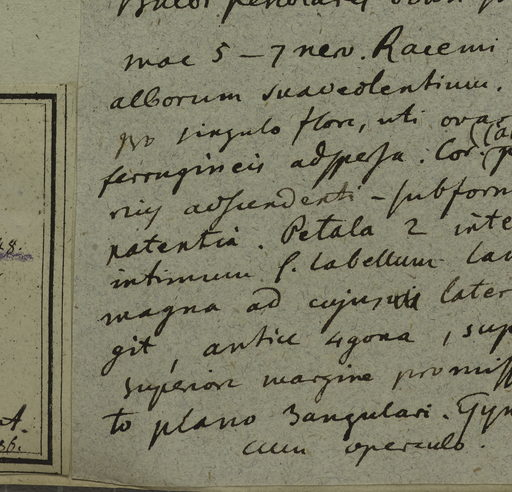 mac 5 – 7 nerv. Racemi
alborum suaveolentium.
pro singulo flore, uti ovar
ferrugineis adspersa. Cor.
adscendenti – subform
patentia. Petala 2 inte
intimum s. labellum lan
magna ad cujus later
git, antice 4gona, sup
superiore margine promiss
to plano 3angulari. Gyn
cum operculo.